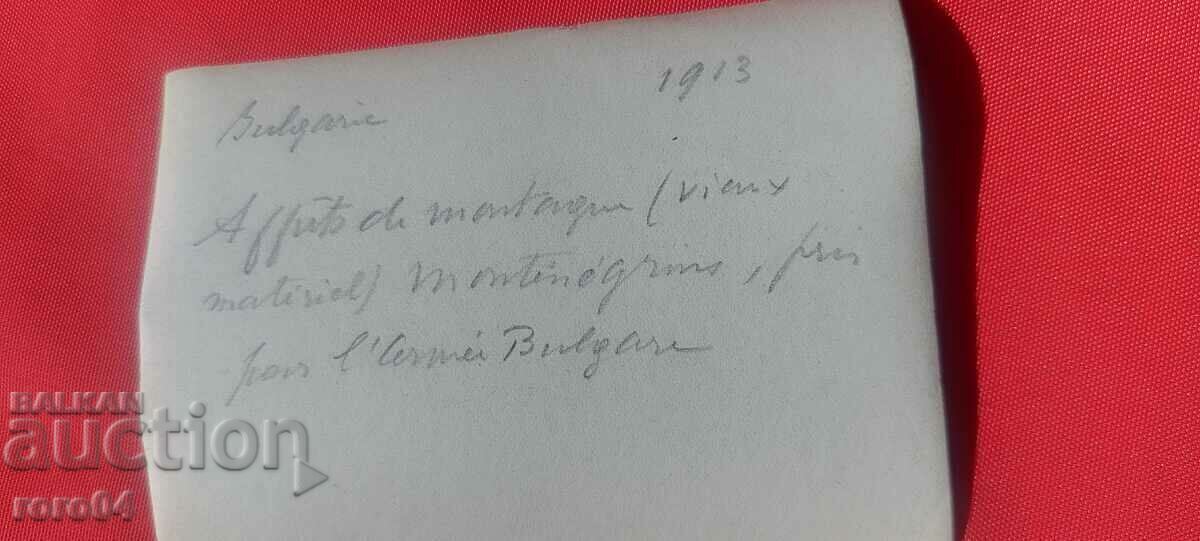 Bulgarie 1913
Affûts de montagne (vieux
matériel) monténégrins, pris
par l'Armée Bulgare
BALKAN
auction
roro04